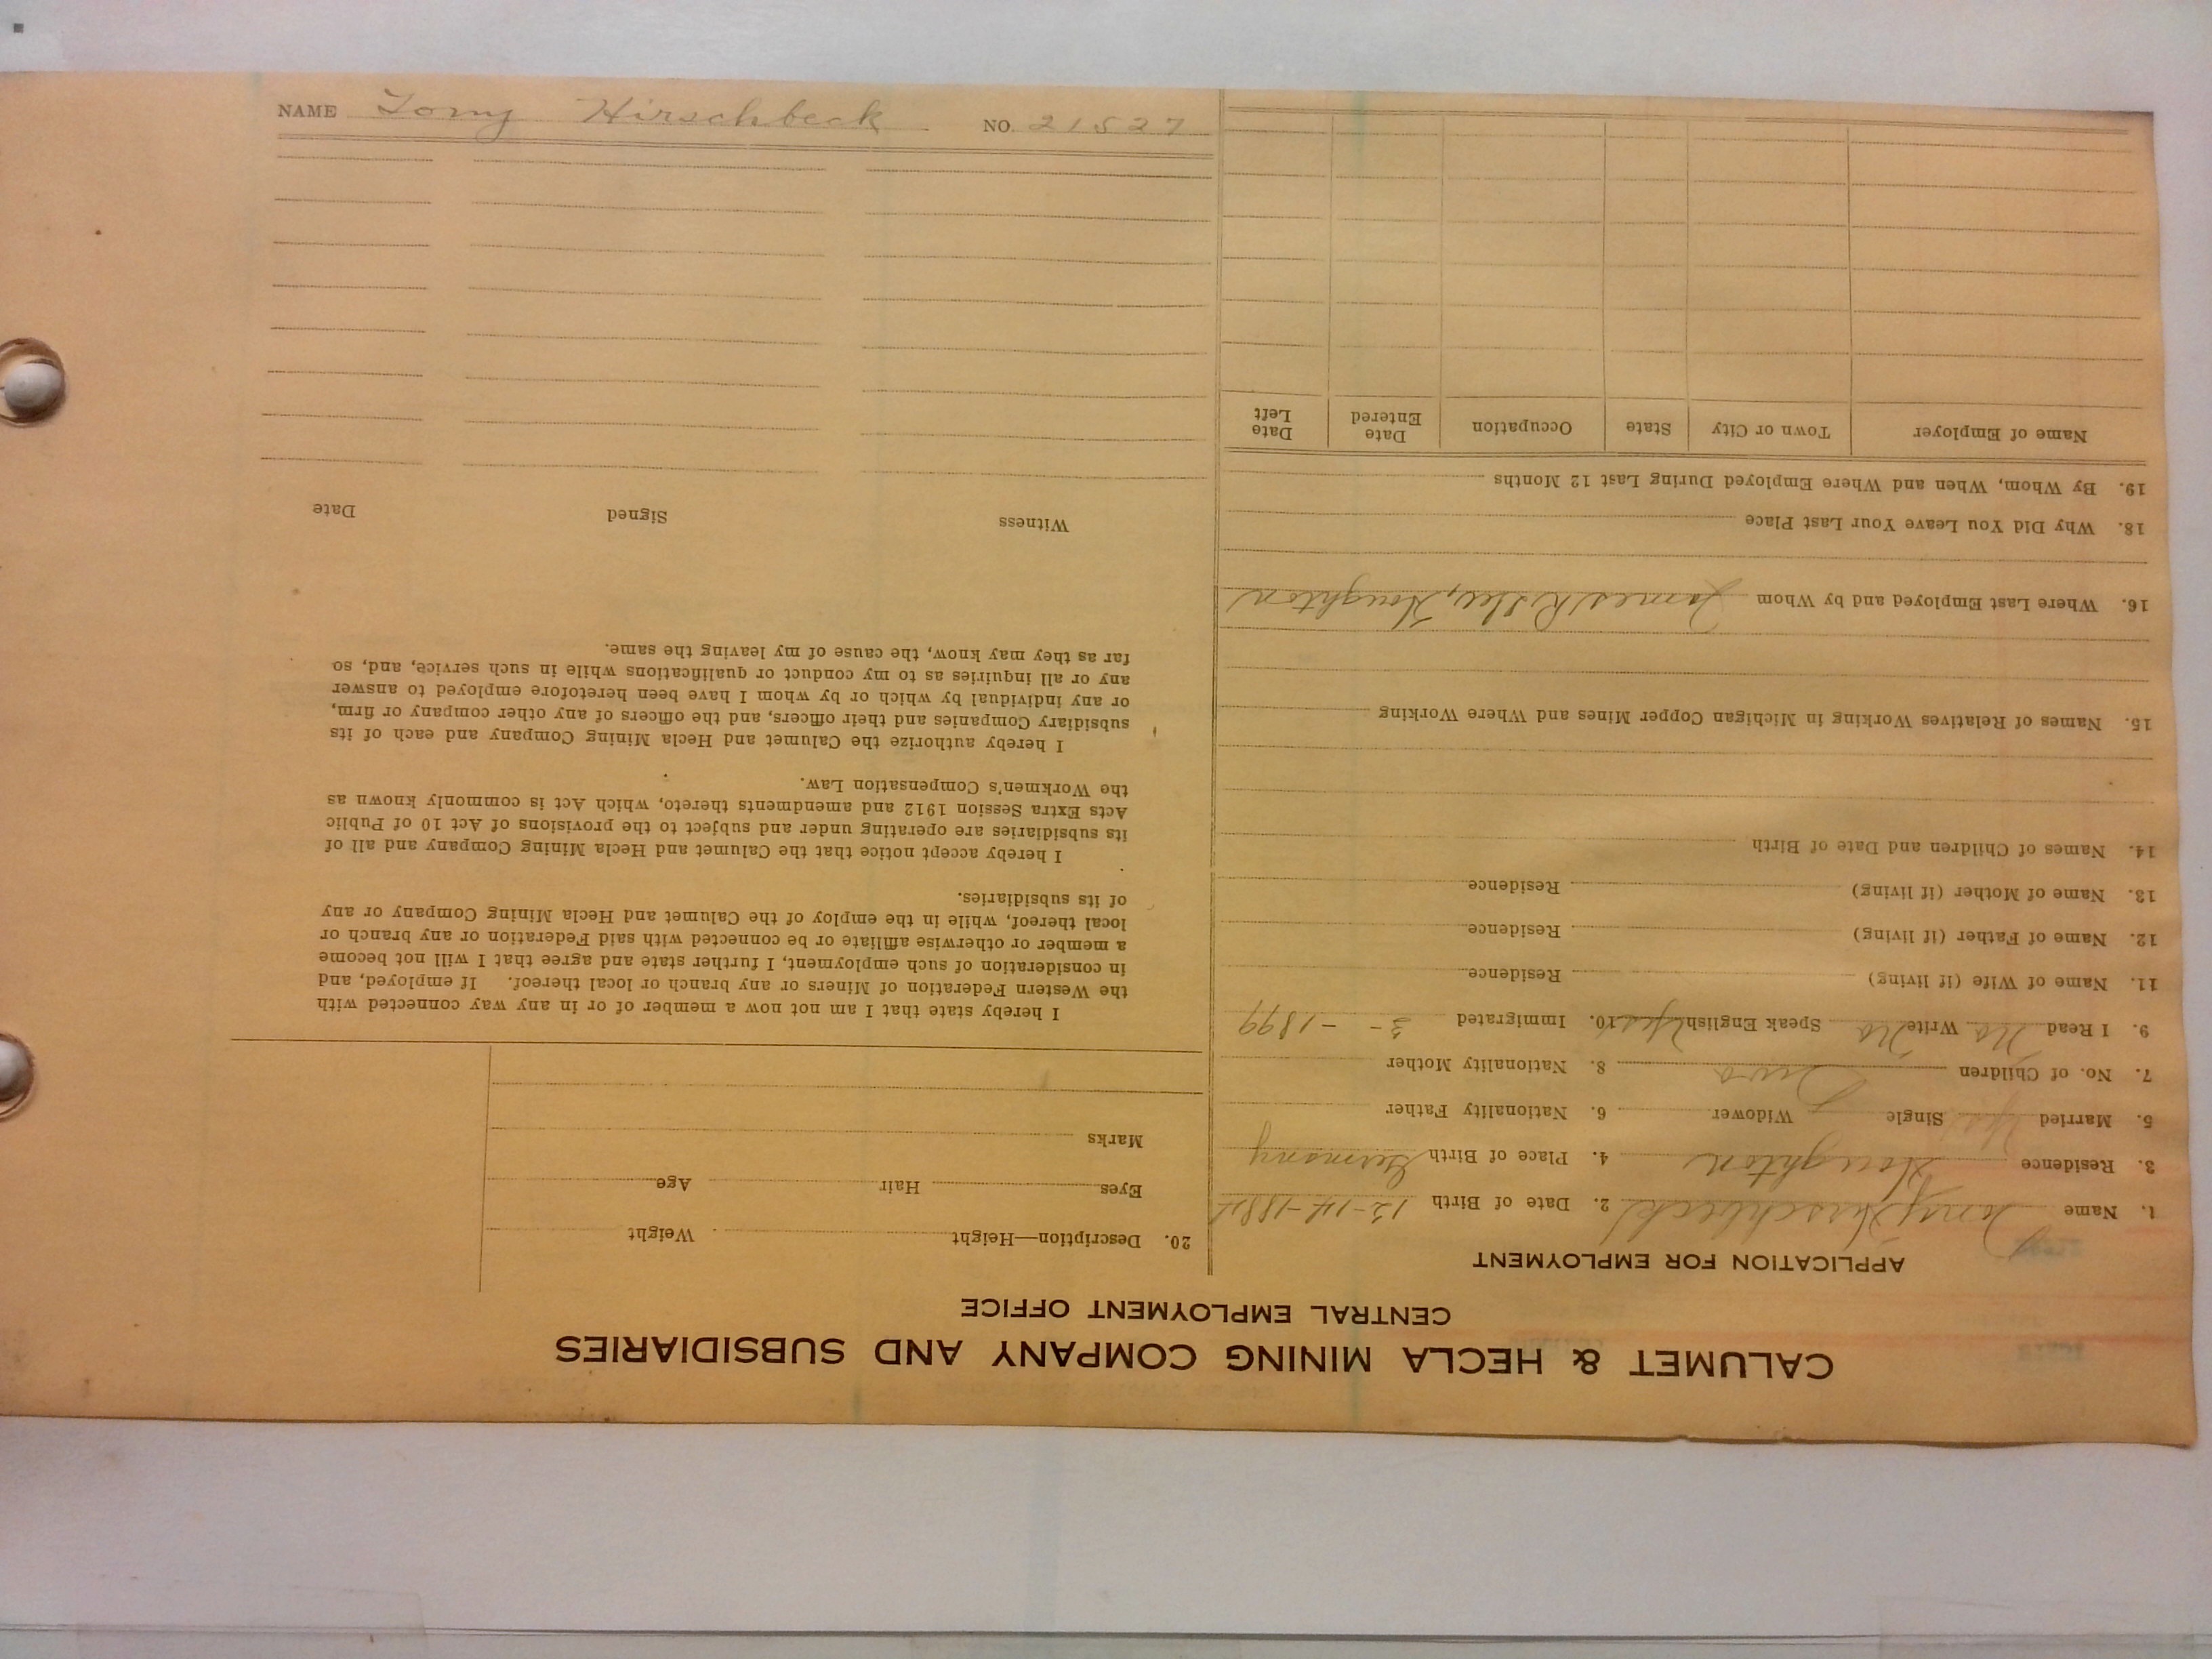 CALUMET & HECLA MINING COMPANY AND SUBSIDIARIES
CENTRAL EMPLOYMENT OFFICE
APPLICATION FOR EMPLOYMENT
1. Name Tony Hirschbeck 2. Date of Birth 12-14-1884
3. Residence Houghton 4. Place of Birth Germany
5. Married Yes Single Widower 6. Nationality Father
7. No. of Children Two 8. Nationality Mother
9. I Read No Write No Speak English Yes 10. Immigrated 3- -1899
11. Name of Wife (if living) Residence
12. Name of Father (if living) Residence
13. Name of Mother (if living) Residence
14. Names of Children and Date of Birth
15. Names of Relatives Working in Michigan Copper Mines and Where Working
16. Where Last Employed and by Whom James R Dee, Houghton
18. Why Did You Leave Your Last Place
19. By Whom, When and Where Employed During Last 12 Months
Name of Employer Town or City State Occupation Date Entered Date Left
20. Description—Height Weight
Eyes Hair Age
Marks
I hereby state that I am not now a member of or in any way connected with
the Western Federation of Miners or any branch or local thereof. If employed, and
in consideration of such employment, I further state and agree that I will not become
a member or otherwise affiliate or be connected with said Federation or any branch or
local thereof, while in the employ of the Calumet and Hecla Mining Company or any
of its subsidiaries.
I hereby accept notice that the Calumet and Hecla Mining Company and all of
its subsidiaries are operating under and subject to the provisions of Act 10 of Public
Acts Extra Session 1912 and amendments thereto, which Act is commonly known as
the Workmen's Compensation Law.
I hereby authorize the Calumet and Hecla Mining Company and each of its
subsidiary Companies and their officers, and the officers of any other company or firm,
or any individual by which or by whom I have been heretofore employed to answer
any or all inquiries as to my conduct or qualifications while in such service, and, so
far as they may know, the cause of my leaving the same.
Witness Signed Date
NAME Tony Hirschbeck NO. 21527